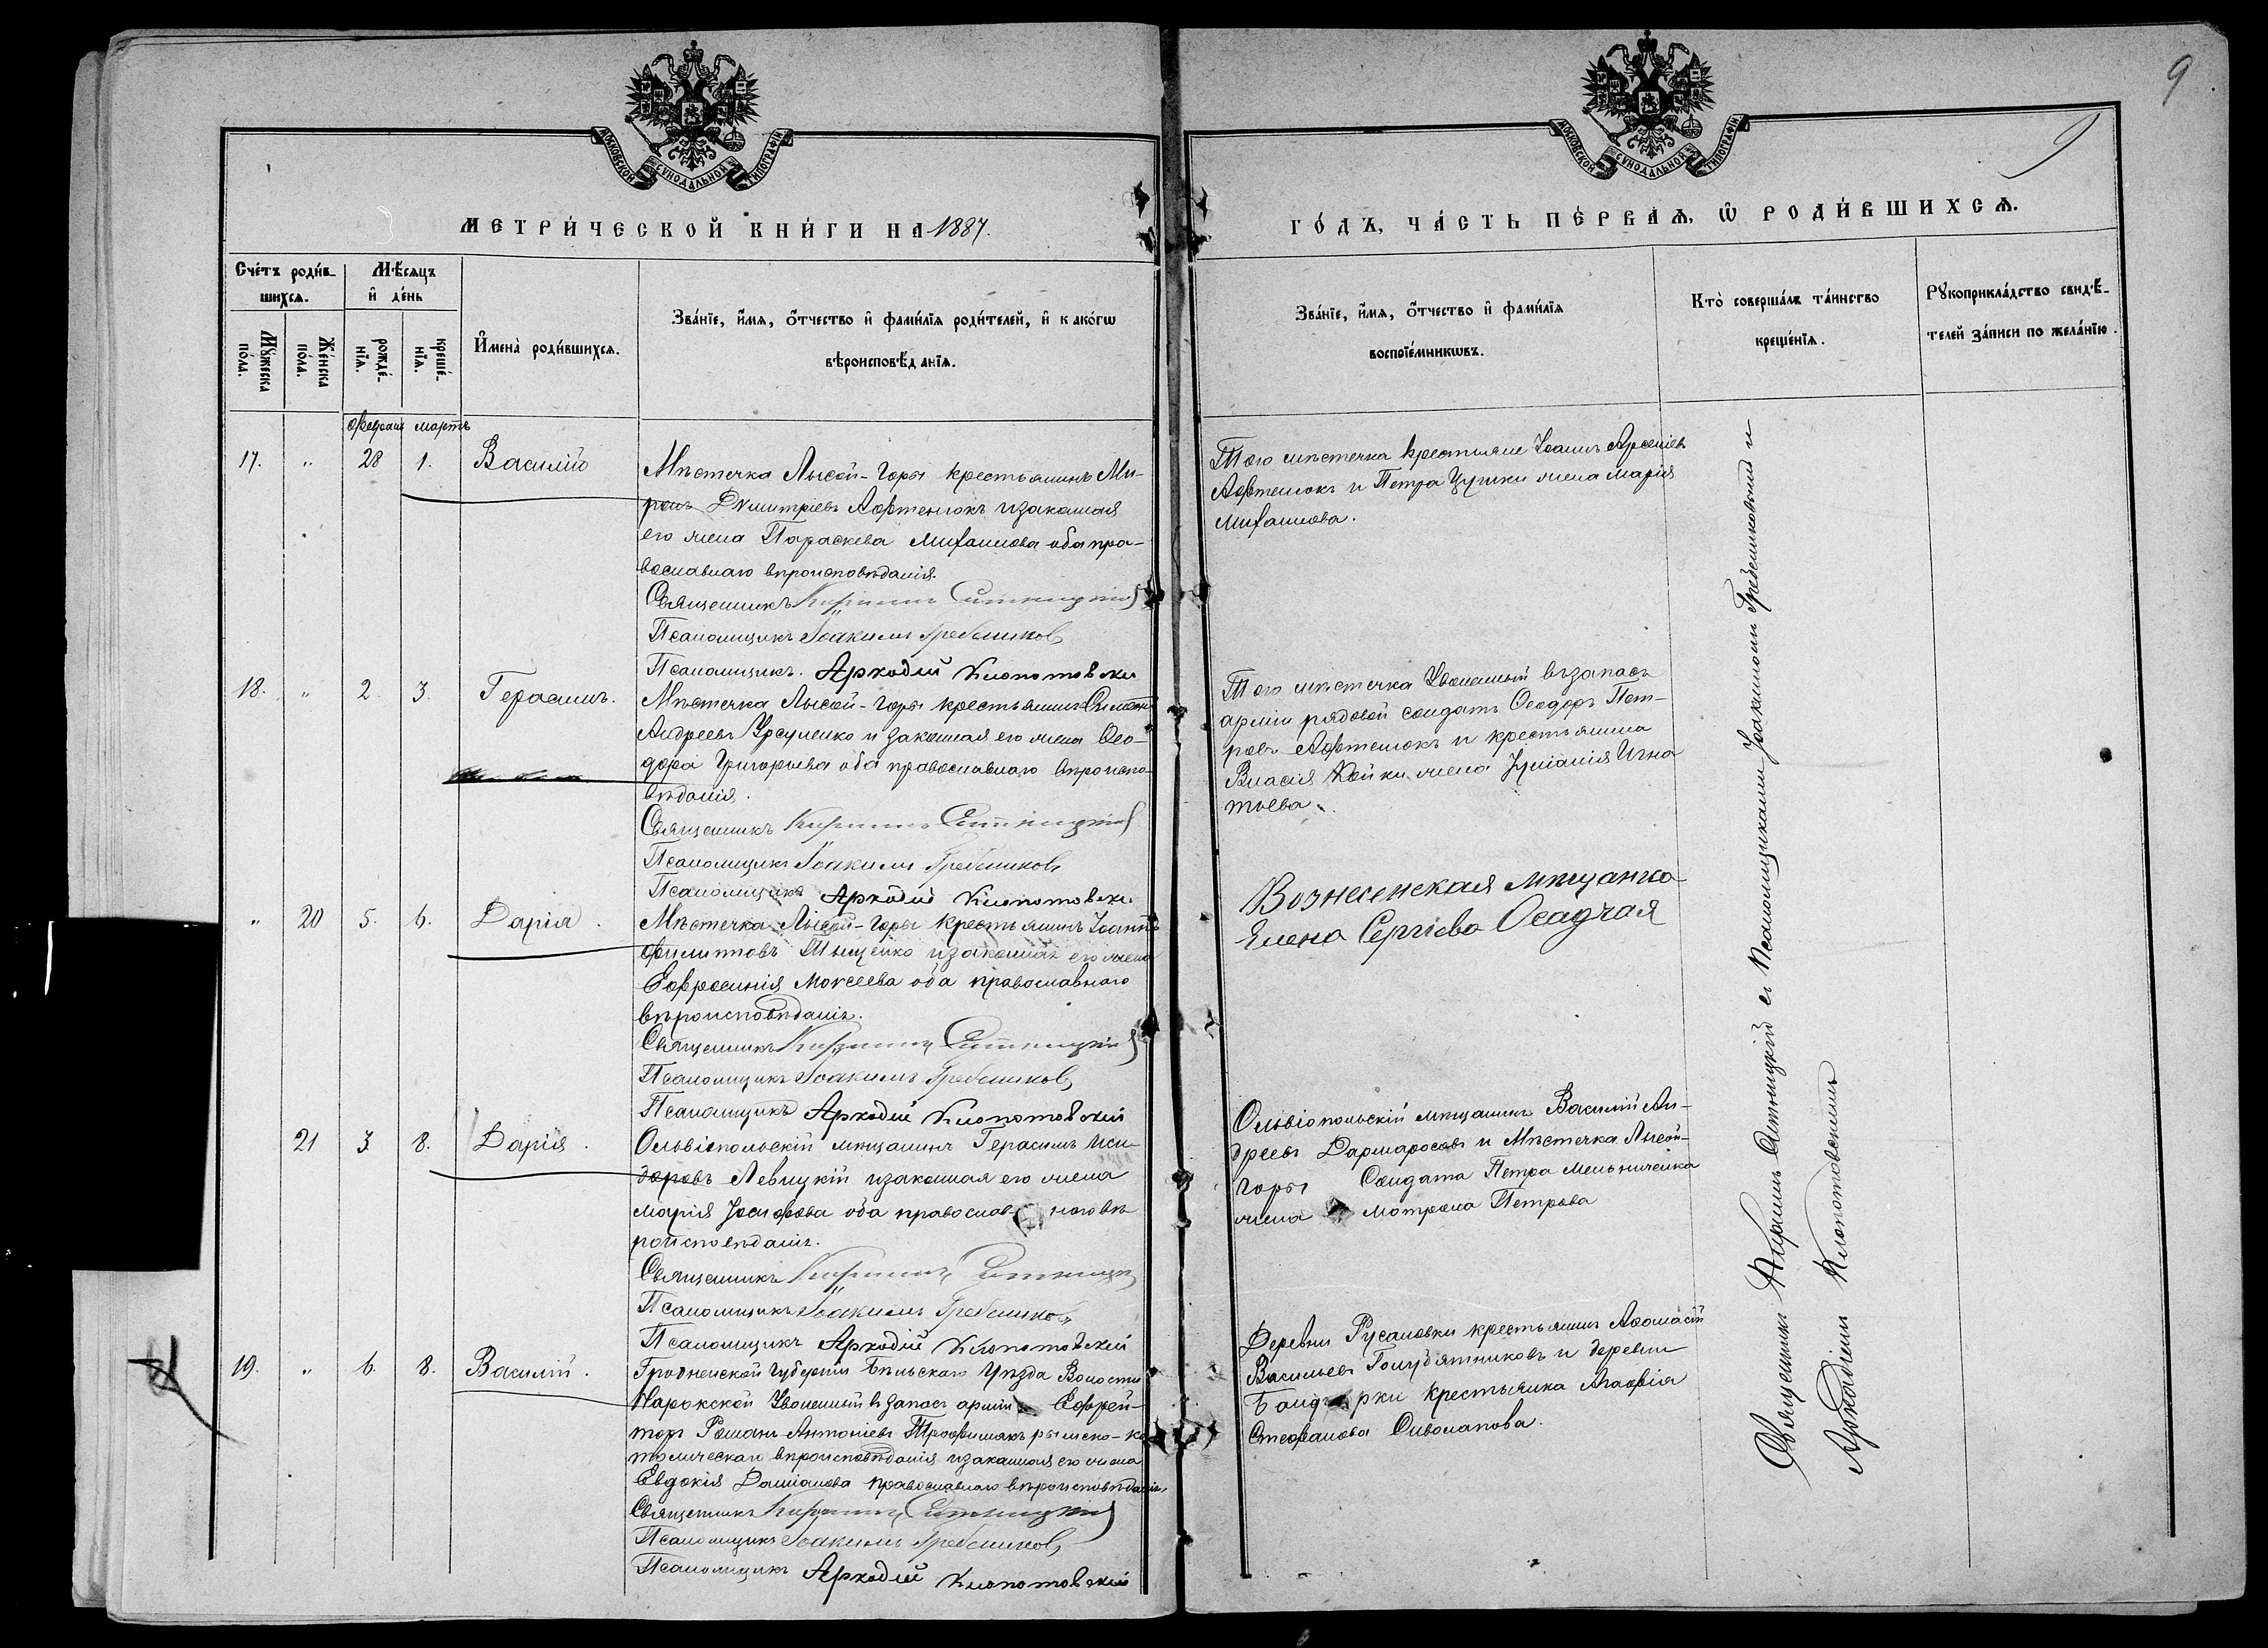 9
9
МОСКОВСКОЙ СУНОДАЛЬНОЙ ТИПОГРАФІИ
МОСКОВСКОЙ СУНОДАЛЬНОЙ ТИПОГРАФІИ
МЕТРИ́ЧЕСКОЙ КНИ́ГИ НА 1887.
ГО́ДЪ, ЧА́СТЬ ПЕ́РВАѦ, Ѡ҆ РОДИ́ВШИХСѦ.
Сче́тъ роди́в-
шихсѧ.
Мꙋ́жеска пола.
Же́нска по́ла.
Мѣ́сѧцъ
и҆ де́нь
рожде́-
нїѧ.
креще́-
нїѧ.
И҆мена̀ роди́вшихсѧ.
Зва́нїе, и҆́мѧ, ѻ҆́тчество и҆ фами́лїѧ роди́телей, и҆ како́гѡ
вѣроисповѣ́данїѧ.
Зва́нїе, и҆́мѧ, ѻ҆́тчество и҆ фами́лїѧ
воспрїе́мникѡвъ.
Кто̀ соверша́лъ та́инство
креще́нїѧ.
Рꙋкоприкла́дство свидѣ́-
телей за́писи по жела́нїю.
Февраля мартъ
17. " 28 1. Василій
Мѣстечка Лысой-Горы крестьянинъ Ми-
ронъ Димитріевъ Афтенюкъ и законная
его жена Параскева Михаилова оба пра-
вославнаго вѣроисповѣданія.
Священникъ Кириллъ Ситницкій
Псаломщикъ Іоакимъ Гребенниковъ
Псаломщикъ. Аркадій Клопотовскій
Того мѣстечка крестьяне Іоаннъ Арсеніевъ
Афтенюкъ и Петра Цушки жена Марія
Михаилова.
18. " 2. 3. Герасимъ.
Мѣстечка Лысой-Горы крестьянинъ Симеонъ
Андреевъ Урсуленко и законная его жена Ѳео-
дора Григорьева оба православнаго вѣроиспо-
вѣданія.
Священникъ Кириллъ Ситницкій
Псаломщикъ Іоакимъ Гребенниковъ
Псаломщикъ Аркадій Клопотовскій
Того мѣстечка Уволенный въ запасъ
арміи рядовой солдатъ Ѳеодоръ Пет-
ровъ Афтенюкъ и крестьянина
Власія жена Іуліанія Игна
тьева.
" 20 5. 6. Дарія.
Мѣстечка Лысой-Горы крестьянинъ Іоаннъ
Филипповъ Тыщенко и законная его жена
Евфросинія Моксеева оба православнаго
вѣроисповѣданія.
Священникъ Кириллъ Ситницкій
Псаломщикъ Іоакимъ Гребенниковъ
Псаломщикъ Аркадій Клопотовскій
Вознесенская мѣщанка
Елена Сергіева Осадчая
21 3 8. Дарія.
Ольвіопольскій мѣщанинъ Герасимъ Иси-
доровъ Левицкій и законная его жена
Марія Іосифова оба православ- наго вѣ
роисповѣданія.
Священникъ Кириллъ Ситницкій
Псаломщикъ Іоакимъ Гребенниковъ
Псаломщикъ Аркадій Клопотовскій
Ольвіопольскій мѣщанинъ Василій Ан-
дреевъ Дармаросовъ и Мѣстечка Лысой-
Горы Солдата Петра Мельниченка
жена Матрона Петрова
19. " 6. 8. Василій.
Гродненской Губерніи Бѣльскаго Уѣзда Волости
Нарокской Уволенный въ запасъ арміи Ефрей-
торъ Романъ Антоніевъ Трофимякъ римско-ка
толическаго вѣроисповѣданія и законная его жена
Евдокія Даміанова православнаго вѣроисповѣданія
Священникъ Кириллъ Ситницкій
Псаломщикъ Іоакимъ Гребенниковъ
Псаломщикъ Аркадій Клопотовскій
Деревни Русановки крестьянинъ Аѳанасій
Васильевъ Голубятниковъ и деревни
крестьянка Агафія
Стефанова Сиволапова.
Священникъ Кириллъ Ситницкій съ Псаломщиками Іоакимомъ Гребенниковымъ и
Аркадіемъ Клопотовскимъ